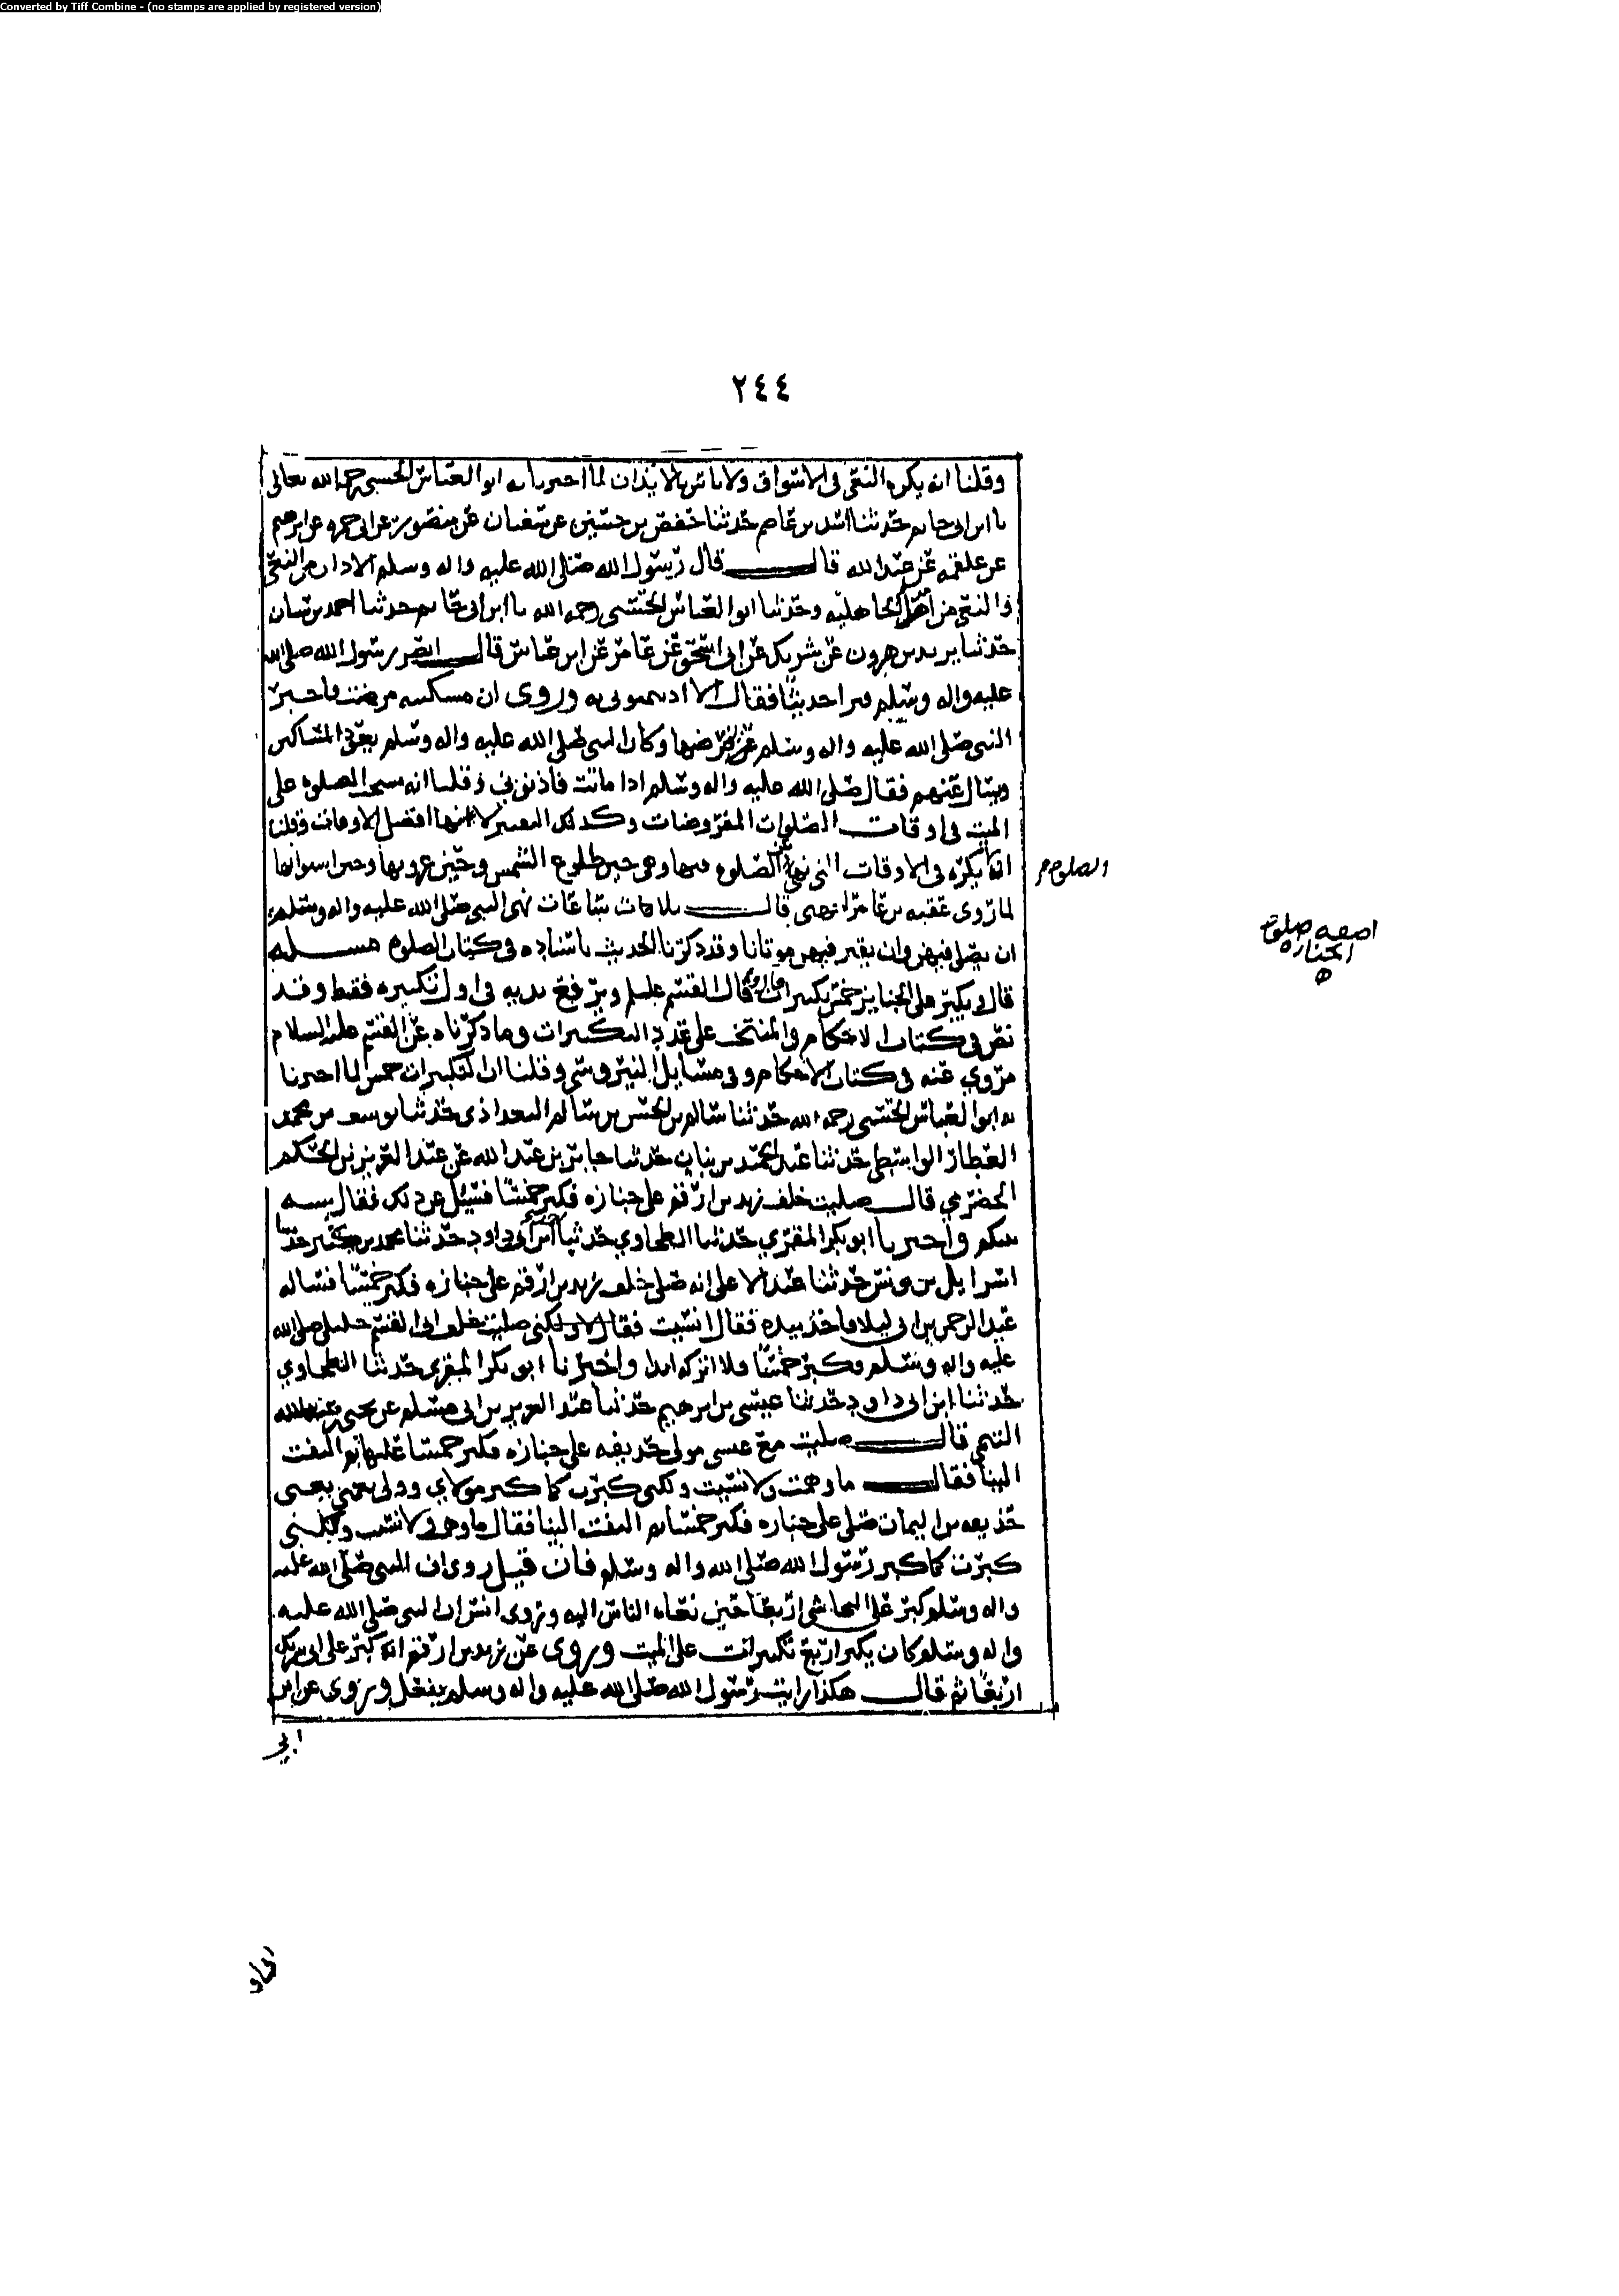 Converted by Tiff Combine - (no stamps are applied by registered version)
٢٤٤
وقلنا انه يكره النعي في الاسواق ولا باس بالايذان لما اخبرنا به ابو العباس الحسني رحمه الله تعالى
نا ابن ابي حاتم حدثنا اسد بن عاصم حدثنا حفص بن حسين عن سفيان عن منصور عن ابي حمزه عن ابرهيم
عن علقمه عن عبد الله قال قال رسول الله صلى الله عليه واله وسلم الا اذان من النعي
فالنعي من اهل الجاهليه وحدثنا ابو العباس الحسني رحمه الله نا ابن ابي حاتم حدثنا احمد بن سنان
حدثنا يزيد بن هرون عن شريك عن ابي اسحق عن عامر عن ابن عباس قال ابصر رسول الله صلى الله
عليه واله وسلم قبرا حديثا فقال الا اذنتموني به وروي ان مسكينه مرضت فاخبر
النبي صلى الله عليه واله وسلم عن مرضها وكان النبي صلى الله عليه واله وسلم يعود المساكين
ويسال عنهم فقال صلى الله عليه واله وسلم اذا ماتت فاذنوني وقلنا انه يستحب الصلوه على
الميت في اوقات الصلوات المفروضات وكذلك التقبير لانها افضل الاوقات وقلنا
انه يكره في الاوقات التي نهي عن الصلوه فيها وهي حين طلوع الشمس وحين غروبها وحين استوائها
لما روى عقبه بن عامر الجهني قال ثلاث ساعات نهى النبي صلى الله عليه واله وسلم
ان يصلى فيهن وان يقبر فيهن موتانا وقد ذكرنا الحديث باسناده في كتاب الصلوه مسئله
قال ويكبر على الجنايز خمس تكبيرات قال القسم عليلم ويرفع يديه في اول تكبيره فقط وقد
نص في كتاب الاحكام والمنتخب على عدد التكبيرات وما ذكرناه عن القسم عليه السلام
مروي عنه في كتاب الاحكام وفي مسايل النيروسي وقلنا ان التكبيرات خمس لما اخبرنا
به ابو العباس الحسني رحمه الله حدثنا سالم بن الحسن بن سالم البغداذي حدثنا يوسف بن محمد
العطار الواسطي حدثنا عبد الحميد بن بيان حدثنا جابر بن عبد الله عن عبد العزيز بن الحكم
الحضرمي قال صليت خلف زيد بن ارقم على جنازه فكبر خمسا فسئل عن ذلك فقال سنه
نبيكم واخبرنا ابو بكر المقري حدثنا الطحاوي حدثنا ابن ابي داود حدثنا محمد بن كثير حدثنا
اسرايل بن يونس حدثنا عبد الاعلى انه صلى خلف زيد بن ارقم على جنازه فكبر خمسا فساله
عبد الرحمن بن ابي ليلا فاخذ بيده فقال انسيت فقال لا ولكني صليت خلف ابي القسم خليلي صلى الله
عليه واله وسلم فكبر خمسا ولا اتركه ابدا واخبرنا ابو بكر المقري حدثنا الطحاوي
حدثنا ابن ابي داود حدثنا عيسى بن ابرهيم حدثنا عبد العزيز بن ابي مسلم عن يحيى بن عبد الله
التيمي قال صليت مع عيسى مولى حذيفه على جنازه فكبر خمسا عليها ثم التفت
الينا فقال ما وهمت ولا نسيت ولكني كبرت كما كبر مولاي وولي نعمتي يعني
حذيفه بن اليمان صلى على جنازه فكبر خمسا ثم التفت الينا فقال ما وهمت ولا نسيت ولكنني
كبرت كما كبر رسول الله صلى الله واله وسلم فان قيل روي ان النبي صلى الله عليه
واله وسلم كبر على النجاشي اربعا حين نعاه الناس اليه وروى انس ان النبي صلى الله عليه
واله وسلم كان يكبر اربع تكبيرات على الميت وروي عن زيد بن ارقم انه كبر على
اربعا ثم قال هكذا رايت رسول الله صلى الله عليه واله وسلم يفعل وروي عن ابن
والصلوه
صلوة
الجنازه
ابي